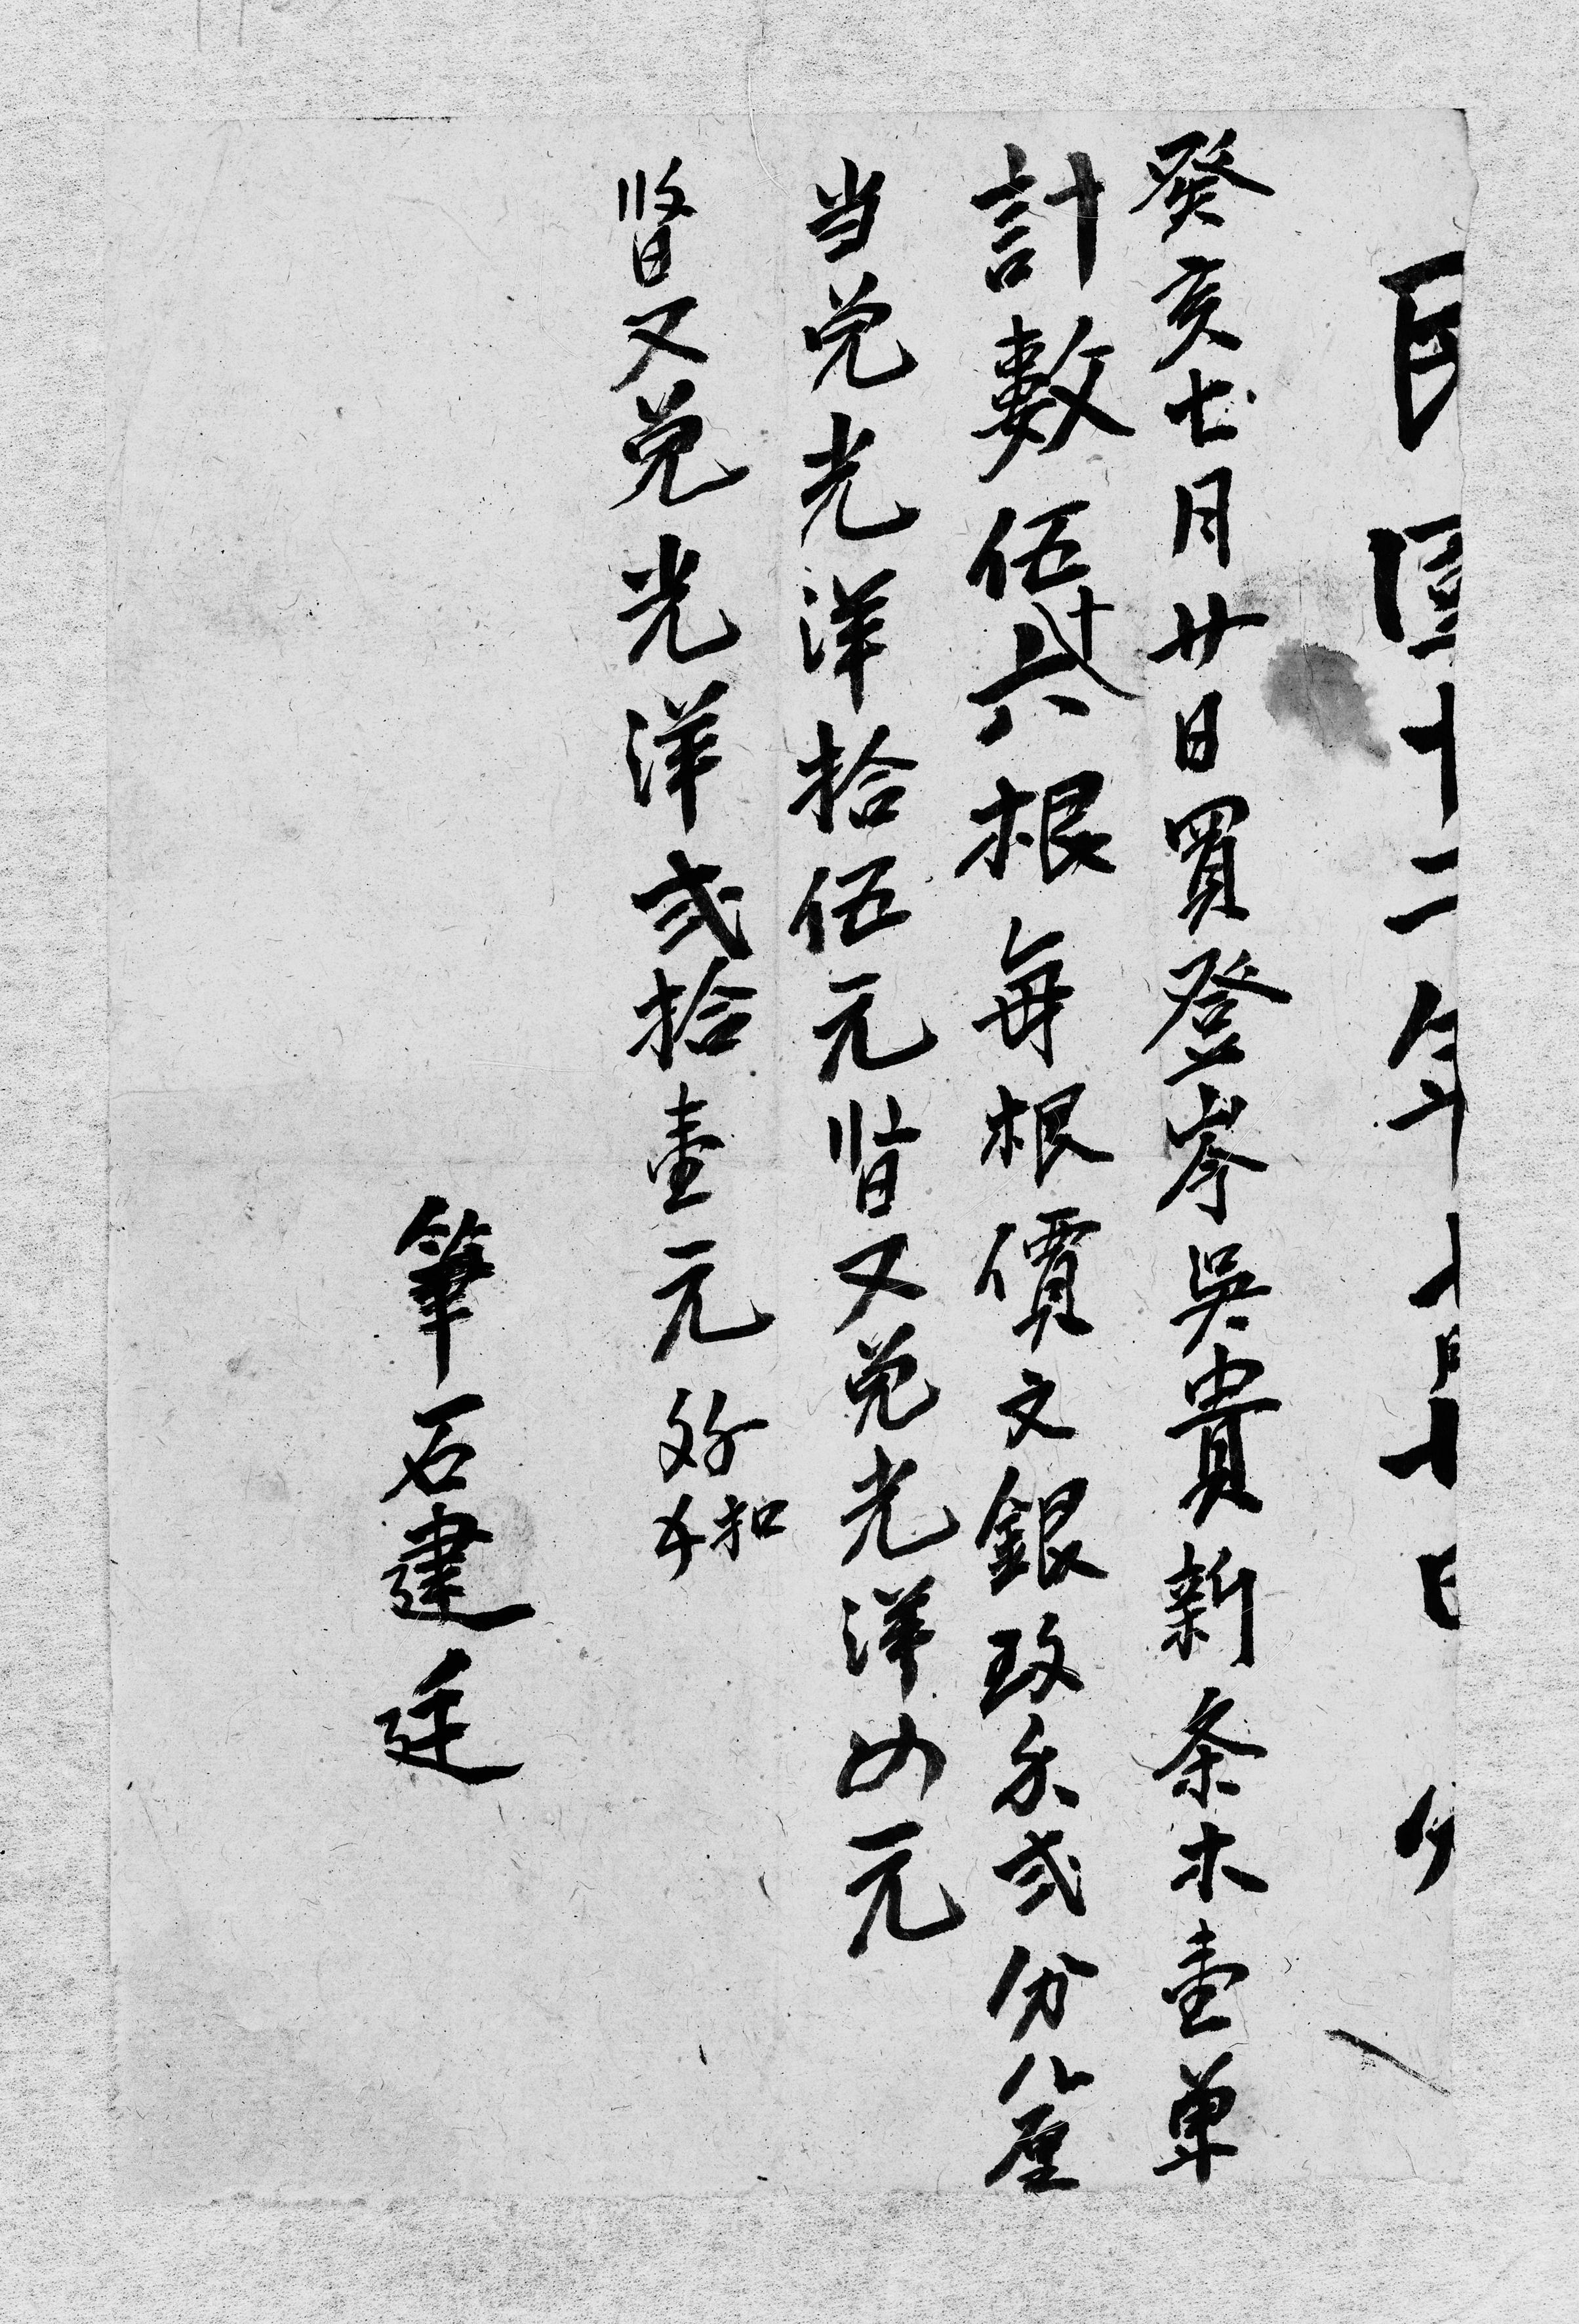 民國十二年七月廿日
癸亥七月廿日買登岑吳貴新条木壹单
計數伍十六根每根價文銀弍分八厘
当兑光洋拾伍元又兑光洋四元
又兑光洋弍拾壹元扣
筆石建廷